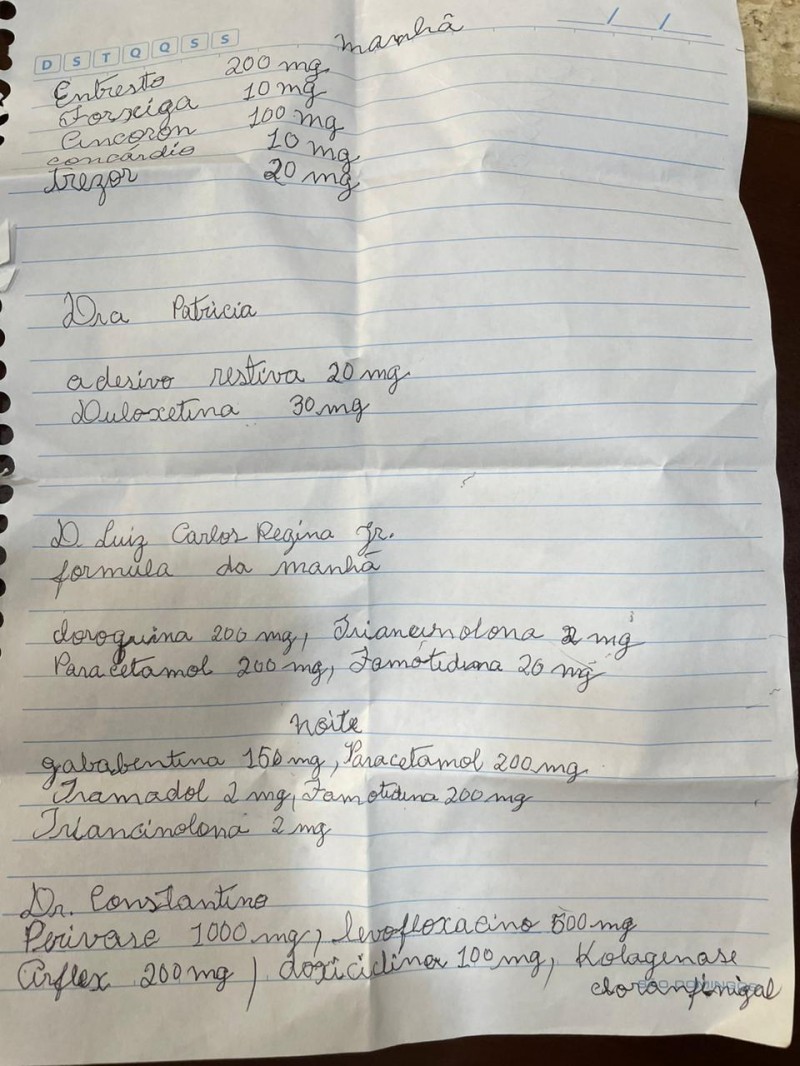 D S T Q Q S S
/ /
manhã
Entresto 200 mg
Forxiga 10 mg
Ancoron 100 mg
concárdio 10 mg
trezor 20 mg
Dra Patricia
adesivo restiva 20 mg
Duloxetina 30 mg
D. Luiz Carlos Regina Jr.
formula da manhã
cloroquina 200 mg, Triancinolona 2 mg
Paracetamol 200 mg, Famotidina 20 mg
noite
gababentina 150 mg, Paracetamol 200 mg
Tramadol 2 mg, Famotidina 200 mg
Triancinolona 2 mg
Dr. Constantino
Perivase 1000 mg, levofloxacino 500 mg
Arflex 200 mg, doxiciclina 100 mg, Kolagenase
cloranfinigal